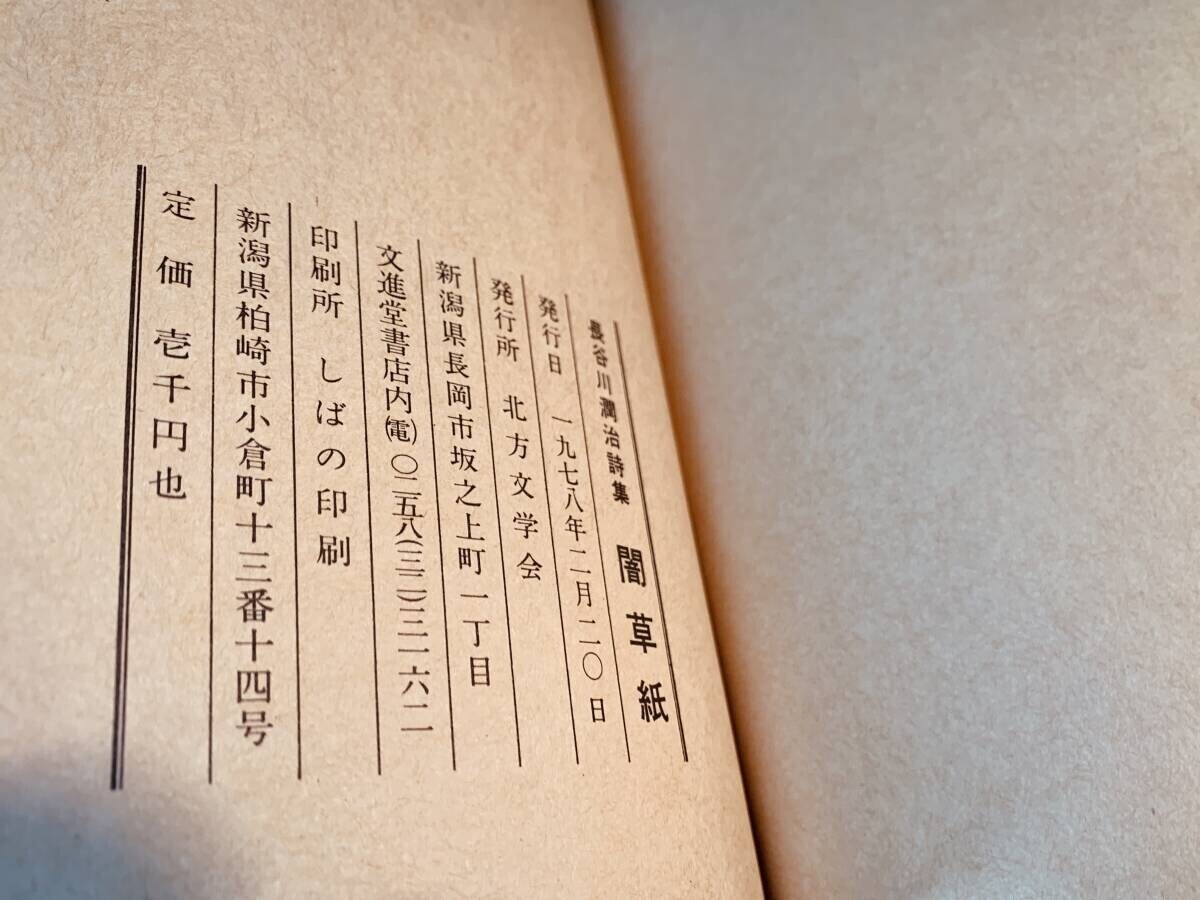 長谷川潤治詩集 闇草紙
発行日 一九七八年二月二〇日
発行所 北方文学会
新潟県長岡市坂之上町一丁目
文進堂書店内㈹〇二五八(三二)二一六二
印刷所 しばの印刷
新潟県柏崎市小倉町十三番十四号
定価 壱千円也